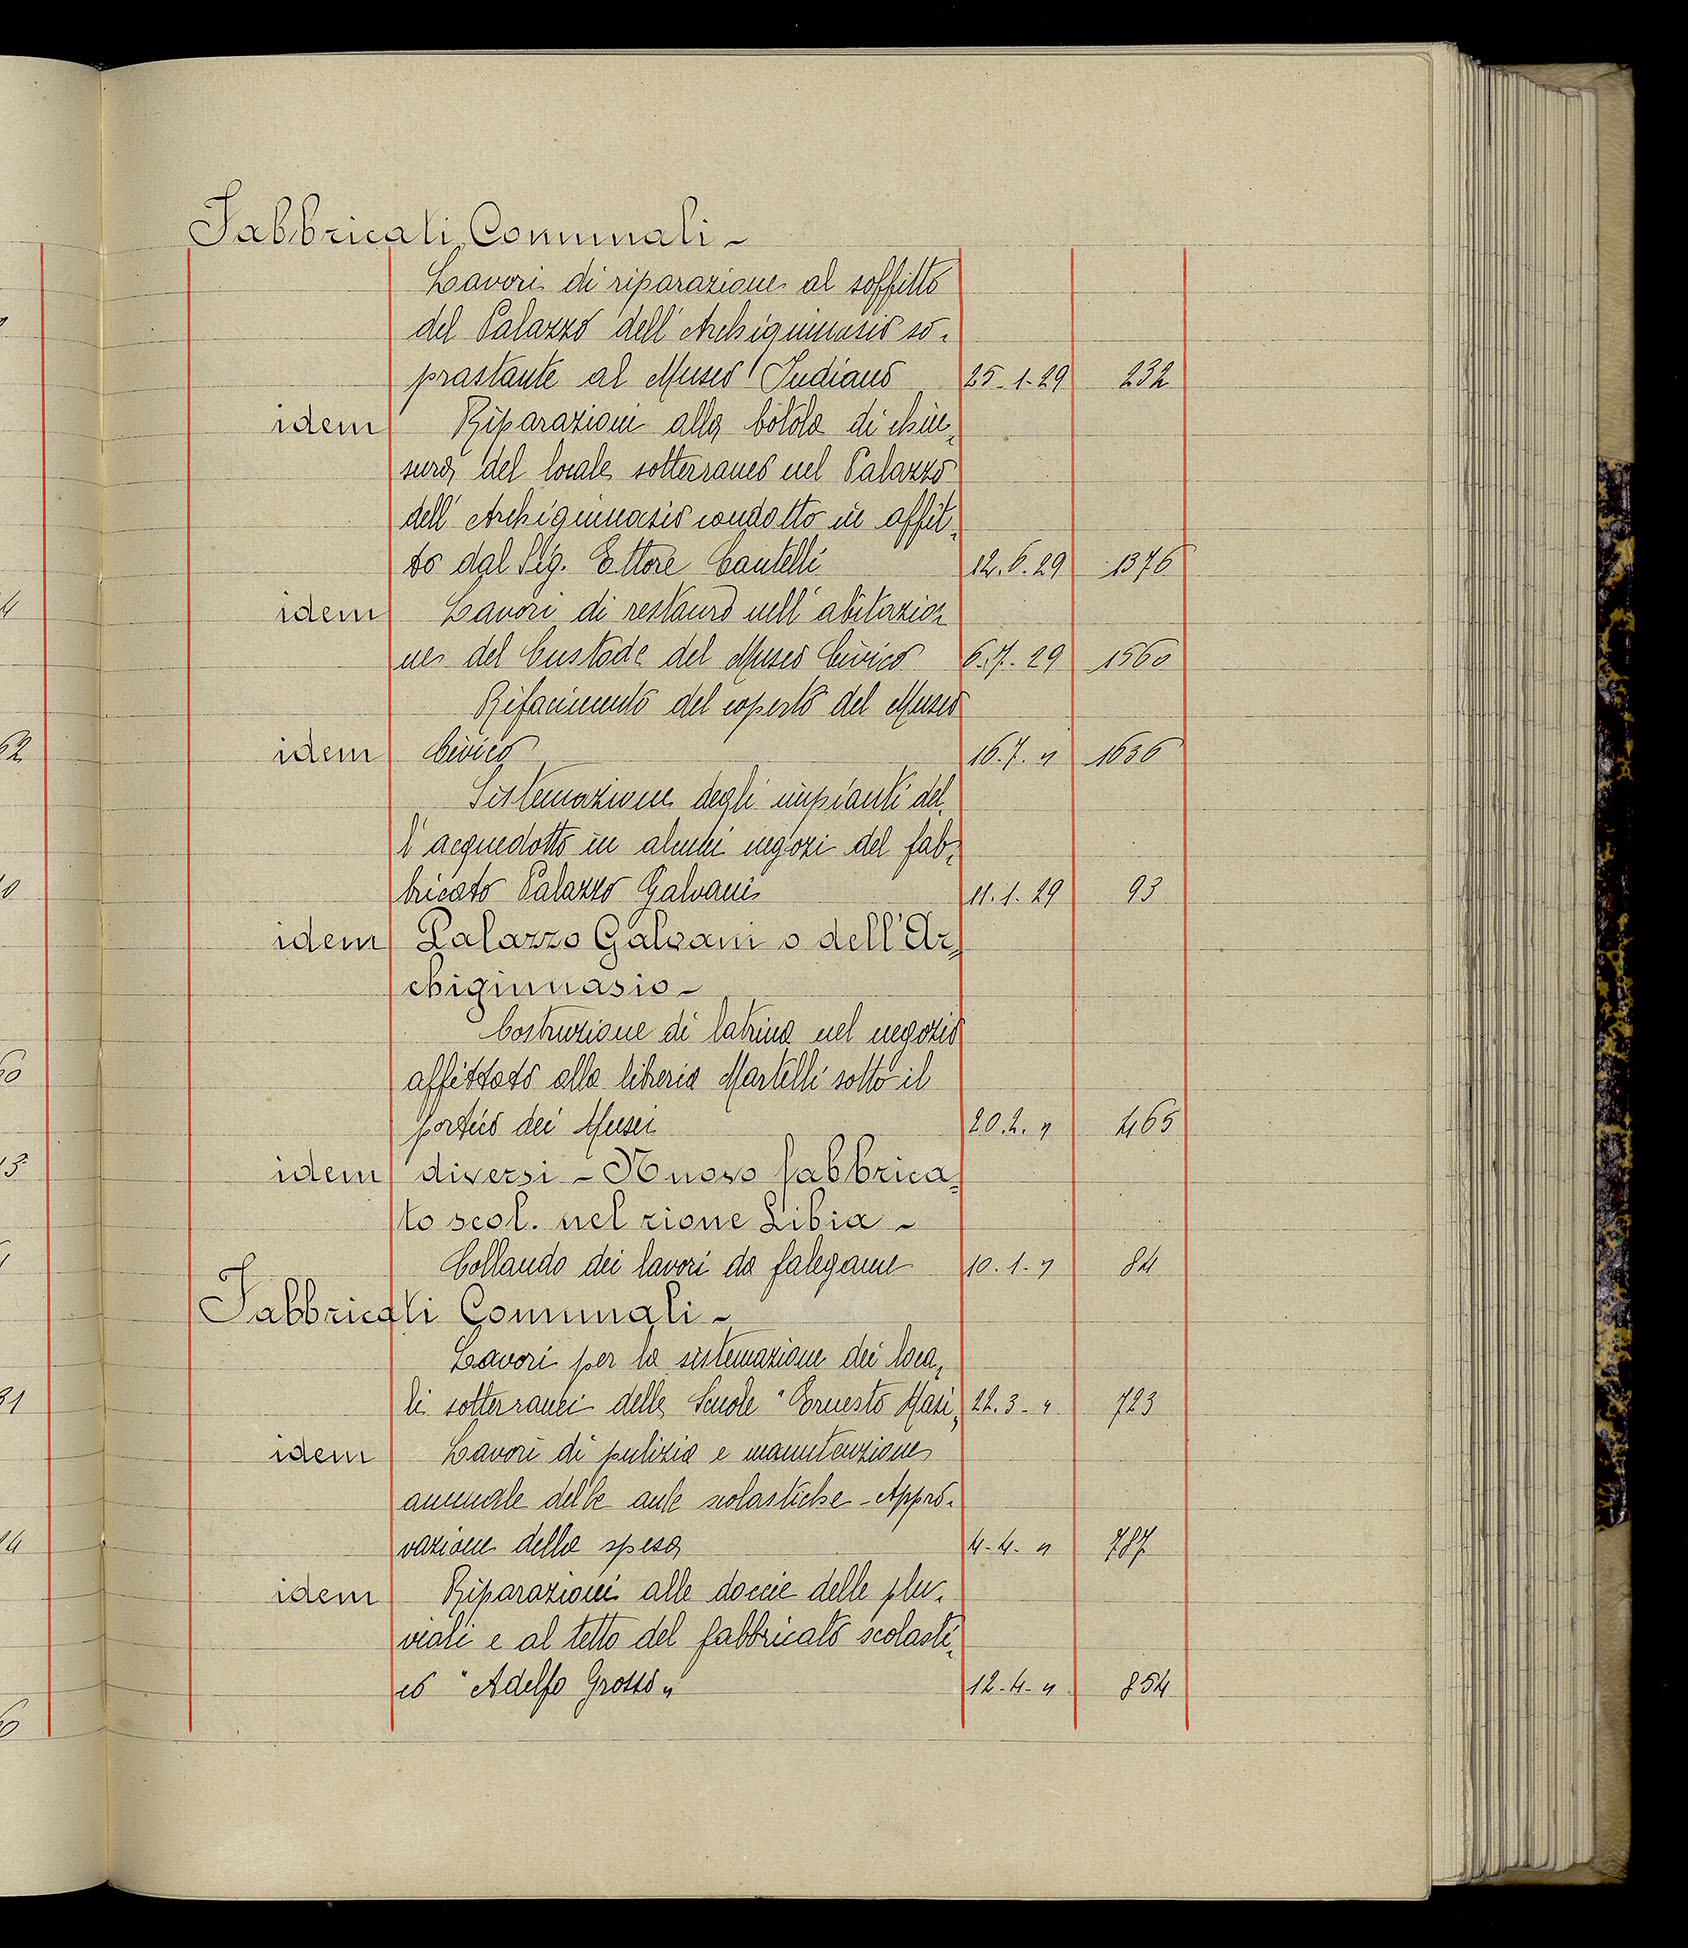 Fabbricati Comunali -
Lavori di riparazione al soffitto
del Palazzo dell'Archiginnasio so-
prastante al Museo Indiano 25-1-29 232
idem Riparazioni alla botola di chiu-
sura del locale sotterraneo nel Palazzo
dell'Archiginnasio condotto in affit-
to dal Sig. Ettore Cantelli 12.6.29 1376
idem Lavori di restauro nell'abitazio-
ne del Custode del Museo Civico 6.7.29 1560
Rifacimento del coperto del Museo
idem Civico 16.7. " 1636
Sistemazione degli impianti del-
l'acquedotto in alcuni negozi del fab-
bricato Palazzo Galvani 11.1.29 93
idem Palazzo Galvani o dell'Ar=
chiginnasio -
Costruzione di latrina nel negozio
affittato alla libreria Martelli sotto il
portico dei Musei 20.2. " 465
idem diversi - Nuovo fabbrica=
to scol. nel rione Libia -
Collaudo dei lavori da falegname 10.1- " 84
Fabbricati Comunali -
Lavori per la sistemazione dei loca-
li sotterranei delle Scuole "Ernesto Masi" 22.3- " 723
idem Lavori di pulizia e manutenzione
annuale delle aule scolastiche - Appro-
vazione della spesa 4-4- " 787
idem Riparazioni alle doccie delle plu-
viali e al tetto del fabbricato scolasti-
co "Adelfo Grosso" 12-4- " 854
62
31